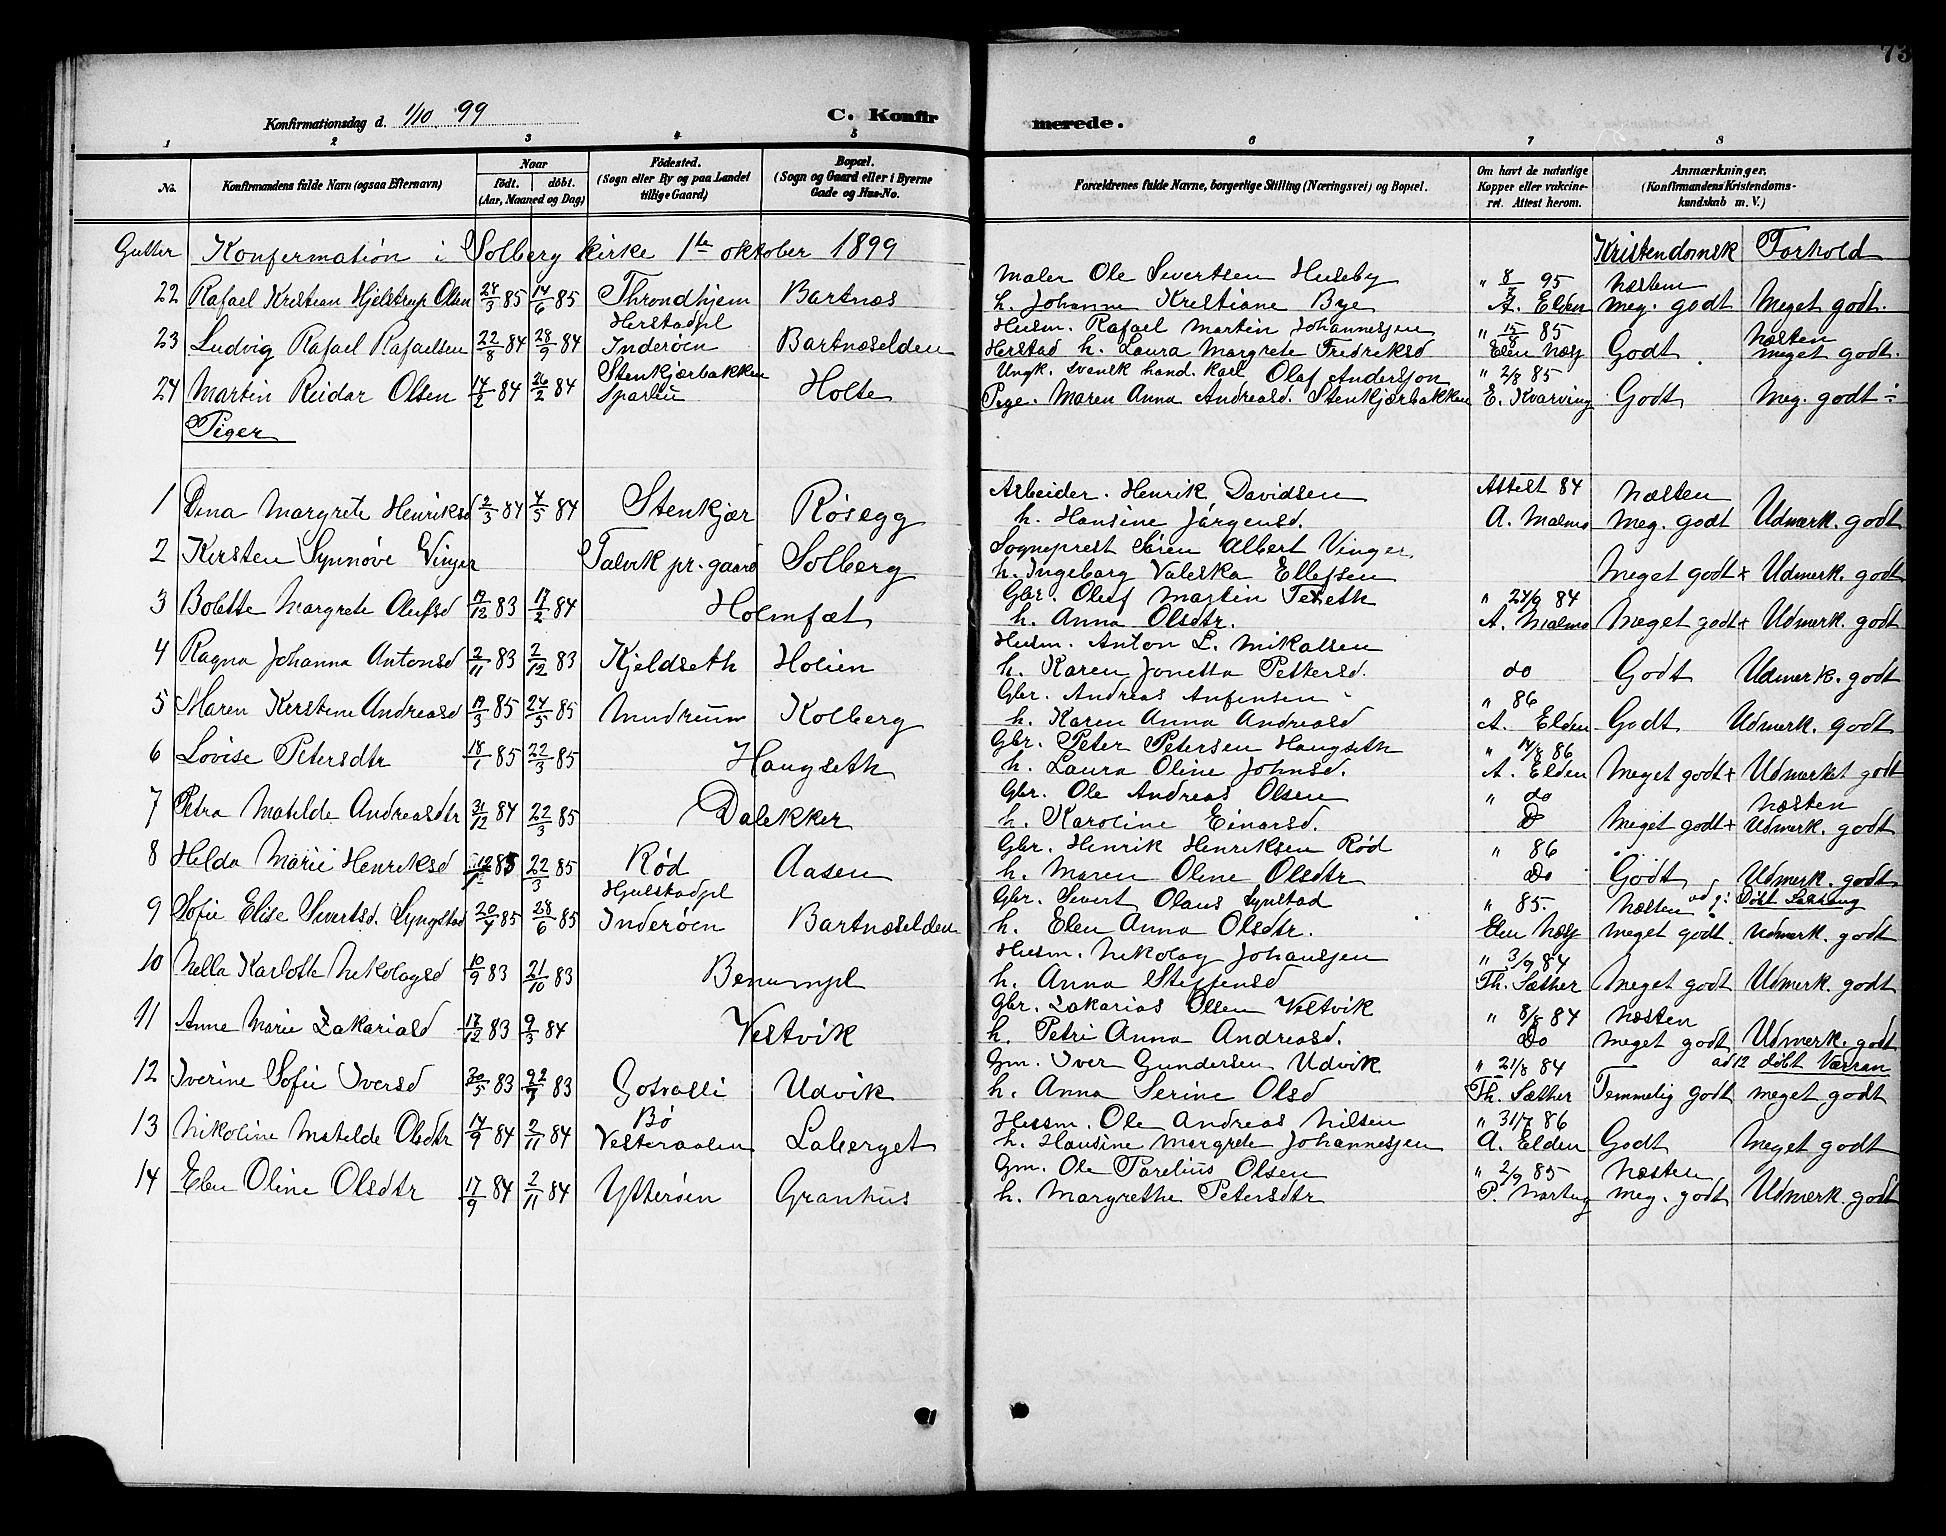 73
Konfirmationsdag d. 1/10 99 C. Konfirmerede.
1 2 3 4 5 6 7 8
No. Konfirmandens fulde Navn (ogsaa Efternavn) Naar födt. döbt. (Aar, Maaned og Dag) Födested. (Sogn eller By og paa Landet tillige Gaard) Bopæl. (Sogn og Gaard eller i Byerne Gade og Hus-No. Forældrenes fulde Navne, borgerlige Stilling (Næringsvei) og Bopæl. Om havt de naturlige Kopper eller vakcineret. Attest herom. Anmærkninger. (Konfirmandens Kristendomskundskab m. V.)
Gutter Konfermation i Solberg kirke 1ste oktober 1899 Kristendomsk Forhold
Maler Ole Sivertsen Huseby " 8/7 95 Næsten
22 Rafael Kristian Hjelstrup Olsen 24/3 85 14/6 85 Throndhjem Bartnæs h. Johanne Kristiane Bye A. Elden meg. godt Meget godt.
Herstadpl Husm. Rafael Martin Johannesen " 15/8 85 Næsten
23 Ludvig Rafael Rafaelsen 22/8 84 28/9 84 Inderøen Bartnæselden Herstad h. Laura Margrete Fredriksd Elen Næss Godt meget godt.
Stenkjærbakken Ungk. svensk hand. karl Olaf Anderson " 2/8 85
24 Martin Reidar Olsen 14/2 84 26/2 84 Sparbu Holte Pige. Maren Anna Andreasd. Stenkjærbakken E. Kvarving Godt Meg. godt ÷
Piger
Arbeider. Henrik Davidsen Attest 84 Næsten
1 Dina Margrete Henriksd 2/3 84 4/5 84 Stenkjær Røsegg h. Hansine Jørgensd. A. Malmo Meg. godt Udmærk. godt
Sogneprest Søren Albert Vinger
2 Kirsten Synnøve Vinger Talvik pr. gaard Solberg h. Ingeborg Valeska Ellefsen Meget godt + Udmerk. godt
Gbr. Oluf Martin Texeth " 24/9 84
3 Bolette Margrete Olufsd 19/12 83 17/2 84 Holmfæt h. Anna Olsdtr. A. Malmo Meget godt + Udmerk. godt
Husm. Anton L. Mikalsen
4 Ragna Johanna Antonsd 2/11 83 2/12 83 Kjeldseth Holien h. Karen Jonetta Pettersd. do Godt Udmerk. godt
Gbr. Andreas Anfinsen " 86
5 Maren Kirstine Andreasd 19/3 85 24/5 85 Mudruum Kolberg h. Karen Anna Andreasd A. Elden Godt Udmerk. godt
Gbr. Peter Petersen Haugseth " 14/8 86
6 Lovise Petersdtr 18/1 85 22/3 85 Haugseth h. Laura Oline Johnsd. A. Elden Meget godt + Udmerket godt
Gbr. Ole Andreas Olsen " do Næsten
7 Petra Matilde Andreasdtr 31/12 84 22/3 85 Dalekker h. Karoline Einarsd. Do Meget godt + Udmerk. godt
Gbr. Henrik Henriksen Rød " 86
8 Helda Marie Henriksd 85 22/3 85 Rød Aasen h. Maren Oline Olsdtr Do Godt Udmerk. godt
Hjulstadpl Gbr. Sivert Olaus Lynstad " 85. Næsten ad 9: Døbt
9 Sofie Elise Sivertsd. Lyngstad 20/4 85 28/6 85 Inderøen Bartnæselden h. Elen Anna Olsdtr. Elen Næss meget godt. Udmerk. godt
Husm. Nekolay Johansen " 3/9 84
10 Nella Karlotte Nekolaysd 10/9 83 21/10 83 Benumpl h. Anna Steffensd Th. Sæther Meget godt Udmærk. godt
Gbr. Zakarias Olsen Vestvik " 8/8 84 Næsten
11 Anne Marie Zakariasd 17/12 83 9/3 84 Vestvik h. Petri Anna Andreasd. Do meget godt Udmerk. godt
Gm. Iver Gundersen Udvik " 21/8 84 ad 12 døbt Værran
12 Iverine Sofie Iversd 30/5 83 22/7 83 Gotvalli Udvik h. Anna Serine Olsd Th. Sæther Temmelig godt meget godt
Bø Hussm. Ole Andreas Nilsen " 31/7 86
13 Nikoline Matelde Olsdtr 14/9 84 2/11 84 Vesteraalen Laberget h. Hansine Margrete Johannessen A. Elden Godt Meget godt
Gm. Ole Parelius Olsen " 2/9 85 Næsten
14 Elen Oline Olsdtr 17/9 84 2/11 84 Ytterøen Granhus h. Margrethe Petersdtr P. Nortug meg. godt Udmerk. godt